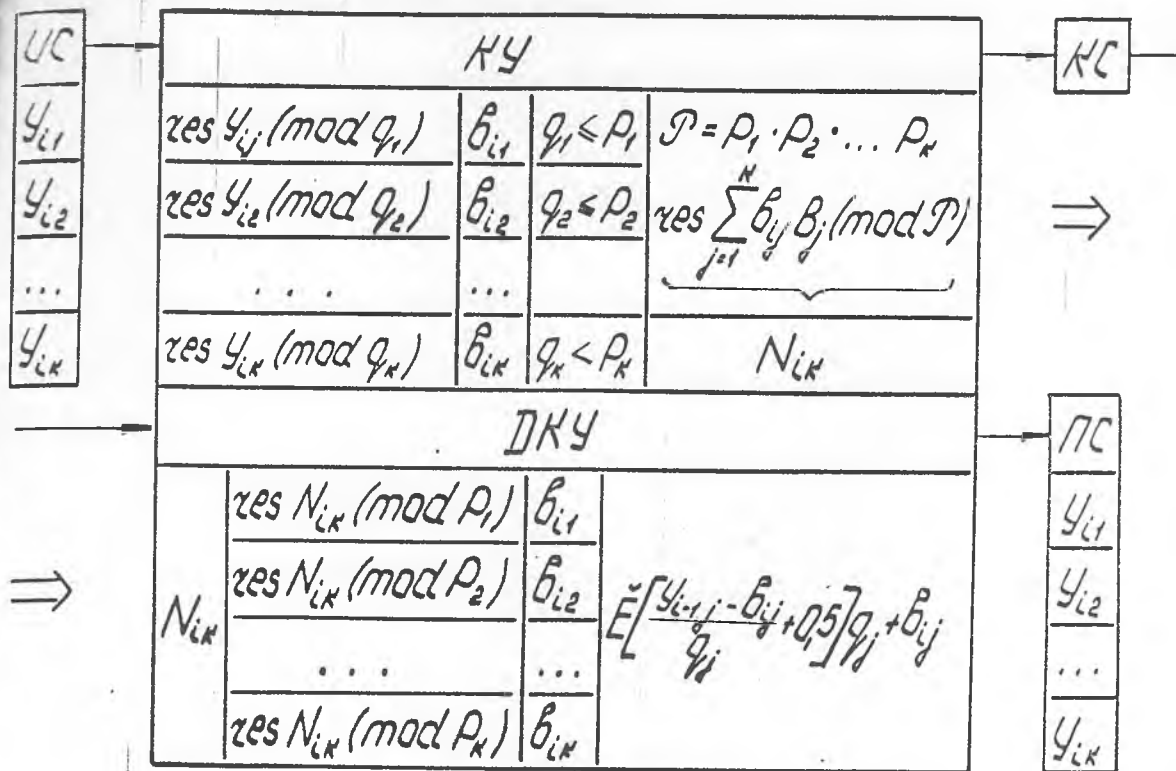 ИС
У_{i1}
У_{i2}
...
У_{iк}
КУ
КС
res У_{ij} (mod q_1) b_{i1} q_1 ≤ P_1 𝒫 = P_1 · P_2 · ... P_к
res У_{i2} (mod q_2) b_{i2} q_2 ≤ P_2 res ∑_{j=1}^{к} b_{ij} B_j (mod 𝒫) ⇒
. . . ...
res У_{iк} (mod q_к) b_{iк} q_к < P_к N_{iк}
ДКУ
ПС
⇒ N_{iк}
res N_{iк} (mod P_1) b_{i1}
res N_{iк} (mod P_2) b_{i2}
. . . ...
res N_{iк} (mod P_к) b_{iк}
Ě[(У_{i-1,j} - b_{ij})/q_j + 0,5] q_j + b_{ij}
У_{i1}
У_{i2}
...
У_{iк}